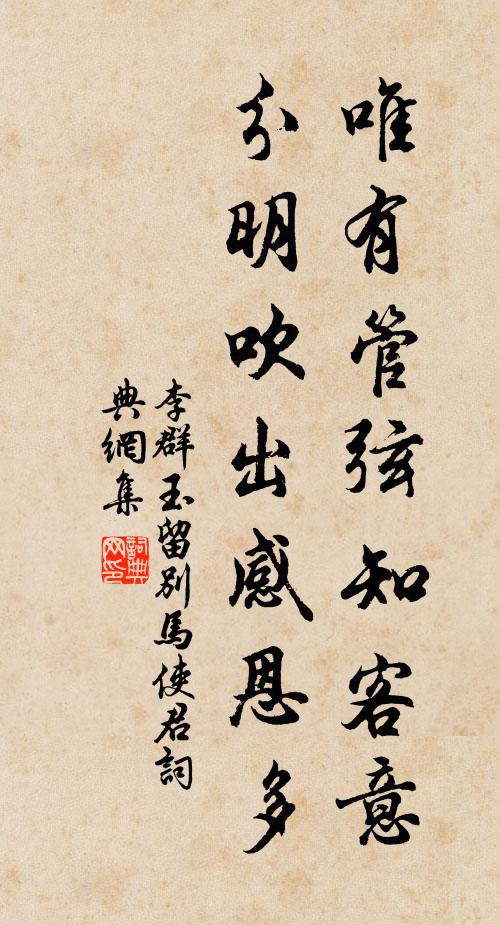 唯有管弦知客意
分明吹出感恩多
李群玉留別馬使君詞
典網集
詞典
网印